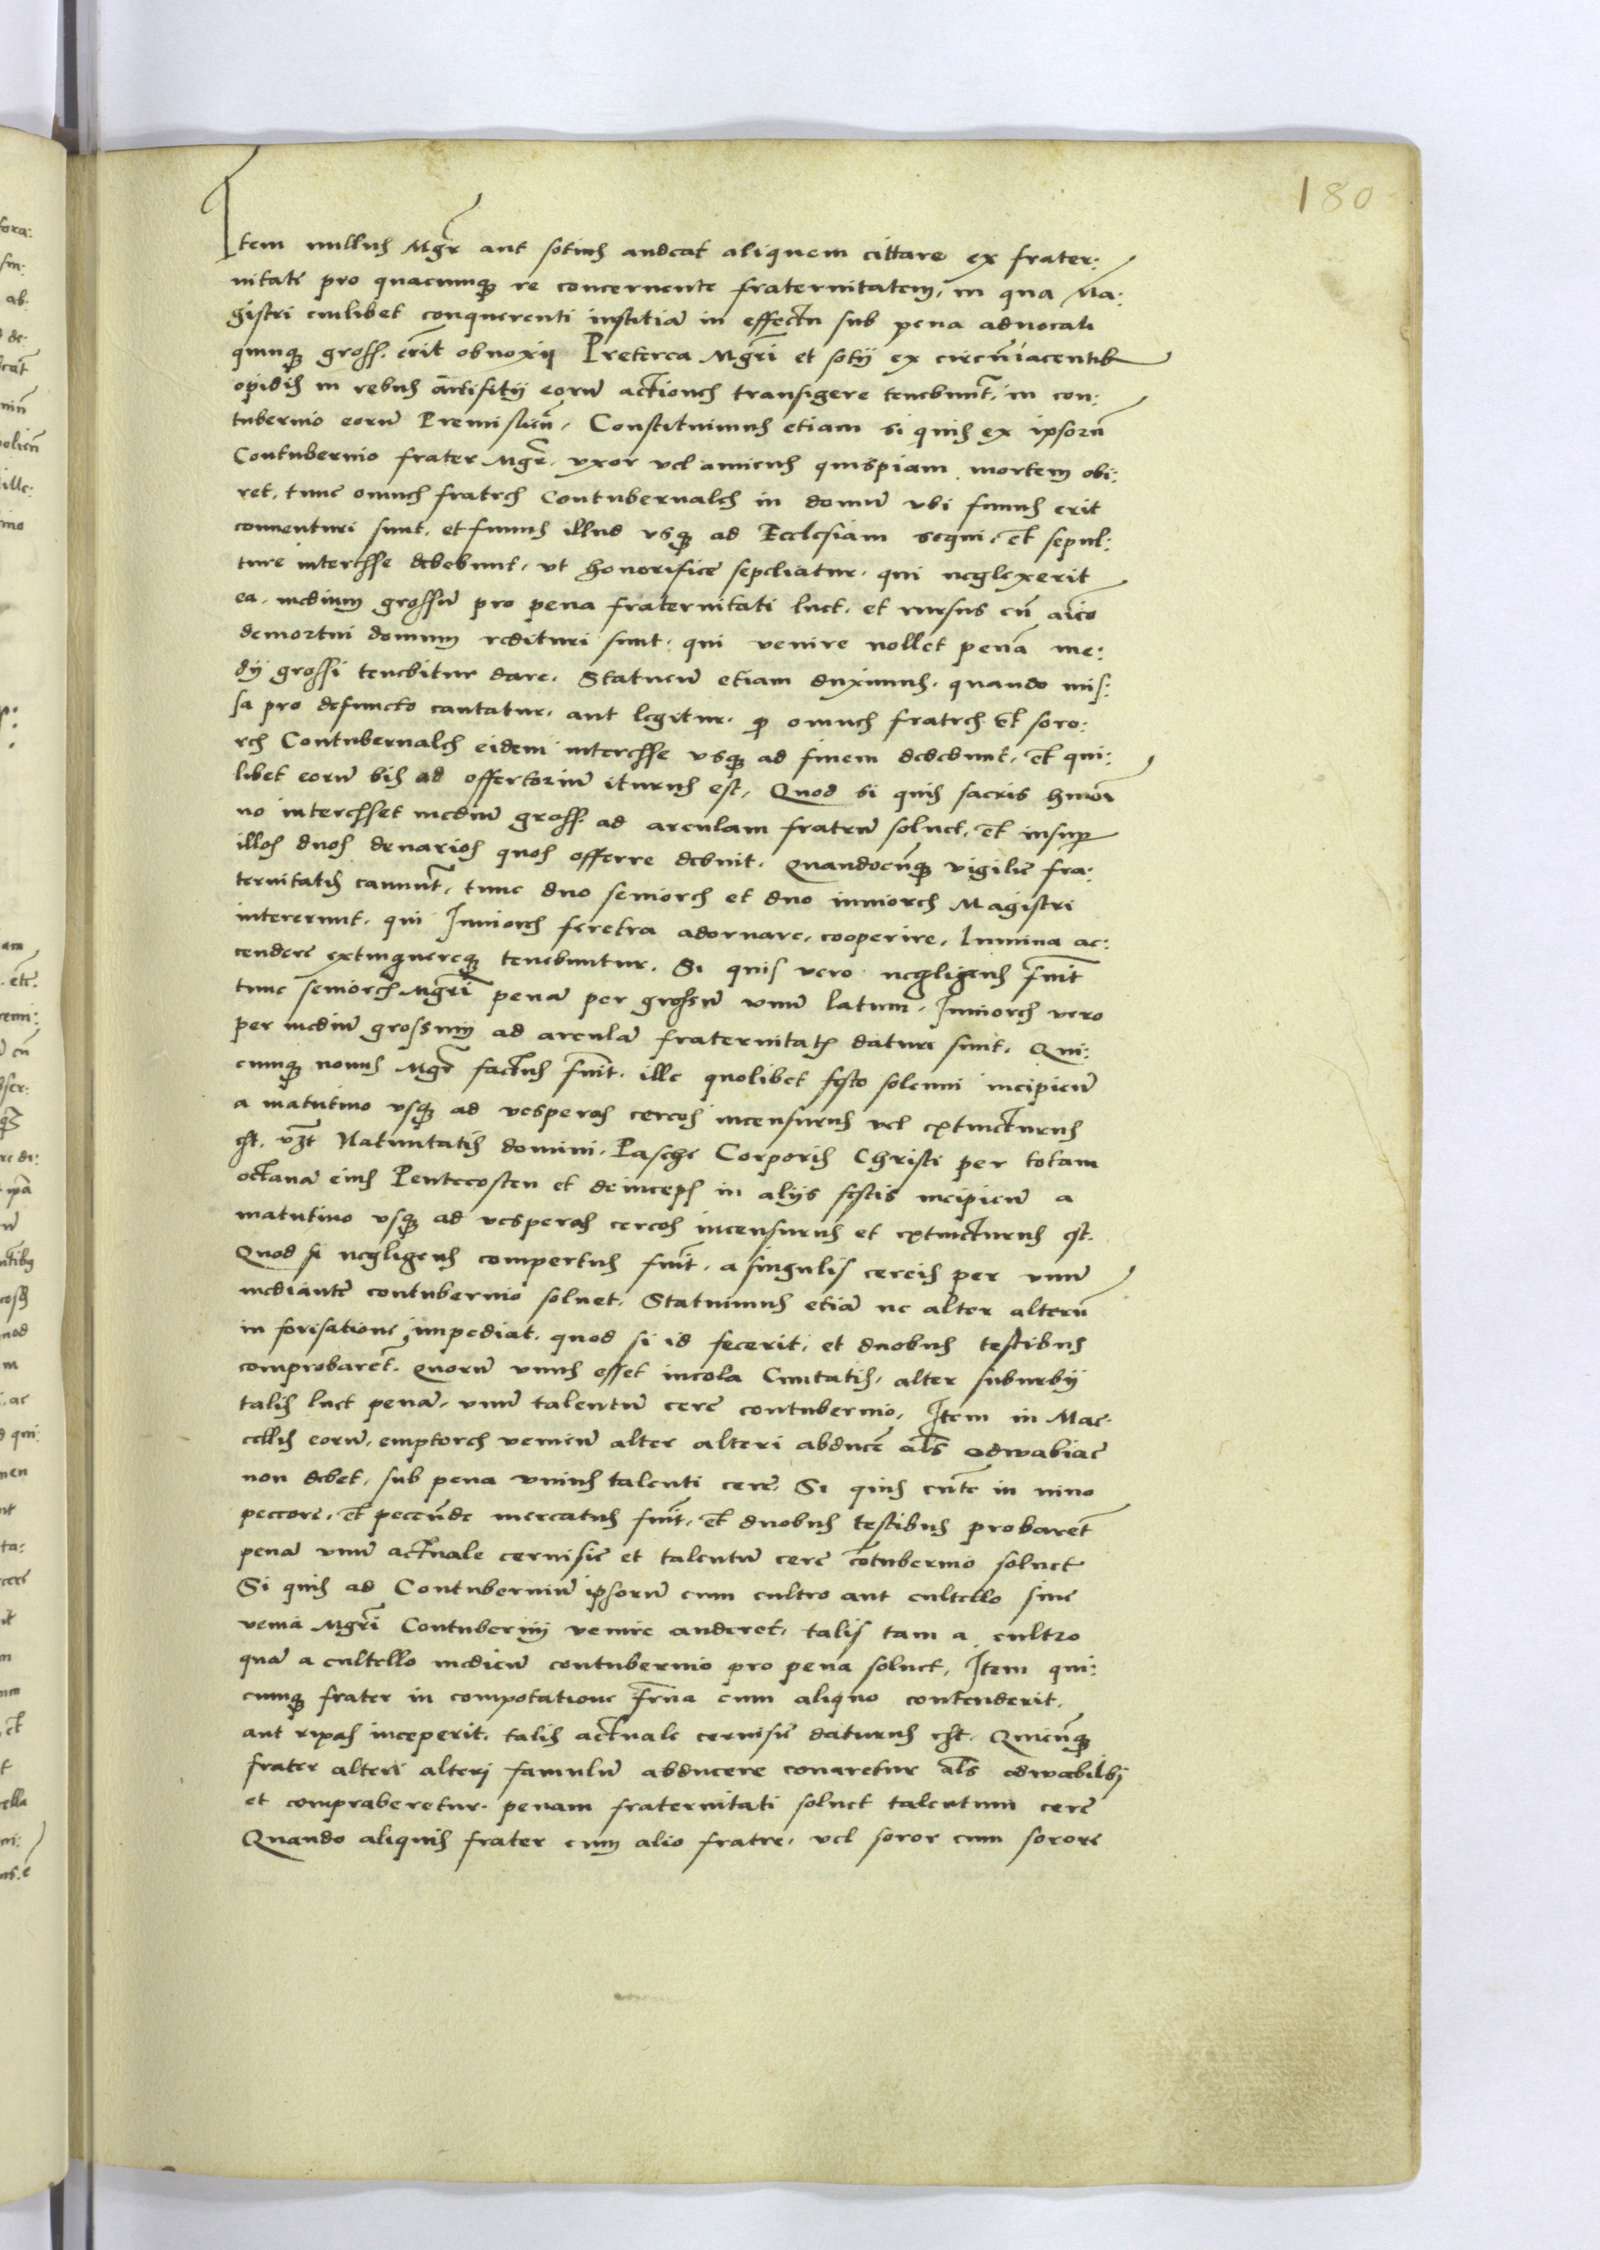 180
Item nullus Mgr̄ aut sotius audeat aliquem cittare ex frater:
nitate pro quacumq̨ re concernente fraternitatem, in qua Ma:
gistri cuilibet conquerenti iustitiā in effectu sub pena aduocati
quinq̨ gross. erit obnoxij Preterea Mgrī et sotij ex circūiacentib
opidis in rebus artifitij eorū actiones transigere tenebunt̄, in con:
tubernio eorū Premislieñ, Constituimus etiam si quis ex ipsorū
Contubernio frater Mgr̄, vxor vel amicus quispiam mortem obi:
ret, tunc omnes fratres Contubernales in domū vbi funus erit
conuenturi sunt, et funus illud vsq̨ ad Ecclesiam sequi, et sepul:
ture interesse debebunt, vt honorifice sepeliatur, qui neglexerit
ea, medium grossū pro pena fraternitati luet, et rursus cū aīco
demortui domum redituri sunt, qui venire nollet penā me:
dij grossi tenebitur dare, Statuēū etiam duximus, quando mis:
sa pro defuncto cantatur, aut legitur, ꝙ omnes fratres et soro:
res Contubernales eidem interesse vsq̨ ad finem debebunt, et qui:
libet eorū bis ad offertoriū iturus est, Quod si quis sacris hmōi
nō interesset mediū gross. ad arculam fratrū soluet, et insuꝑ
illos duos denarios quos offerre debuit. Quandocūq̨ vigilie fra:
ternitatis canunt̄, tunc duo seniores et duo iuniores Magistri
intererunt, qui Iuniores feretra adornare, cooperire, lumina ac:
cendere extinguereq̨ tenebuntur. Si quis vero negligens fuīt
tunc seniores Mgrī penā per grossū vnū latum, Iuniores vero
per mediū grossum ad arculā fraternitatis daturi sunt. Qui:
cumq̨ nouus Mgr̄ factus fuīt, ille quolibet festo solenni incipieñ
a matutino vsq̨ ad vesperas cereos incensurus vel extincturus
est, vꝫt Natiuitatis domini, Pasche Corporis Christi per totam
octauā eius Pentecosten et deinceps in alijs festis incipieñ a
matutino vsq̨ ad vesperas cereos incensurus et extincturus est.
Quod si negligens compertus fuīt, a singulis cereis per vnū
mediantē contubernio soluet, Statuimus etiā ne alter alterū
in forisatione impediat, quod si id fecerit, et duobus testibus
comprobaret̄, quorū vnus esset incola Ciuitatis, alter suburbij
talis luet penā, vnū talentū cere contubernio, Item in Mac:
cellis eorū, emptores venieñ alter alteri abducē als odwabiac
non debet, sub pena vnius talenti cere, Si quis cūtē in viuo
peccore, et pecēūde mercatus fuīt, et duobus testibus probaret̄
penā vnū actuale ceruisie et talentū cere cōtubernio soluet
Si quis ad Contuberniū ipsorū cum cultro aut cultello sine
venia Mgrī Contubernij venire auderet, talis tam a cultro
quā a cultello medieū contubernio pro pena soluet, Item qui:
cumq̨ frater in compotatione frn̄a cum aliquo contenderit,
aut rixas inceperit, talis actuale ceruisie daturus est. Quicūq̨
frater alteri alteri famulū abducere conaretur als odwabilbi
et compraberetur. penam fraternitati soluet talentum cere
Quando aliquis frater cum alio fratre, vel soror cum sorore